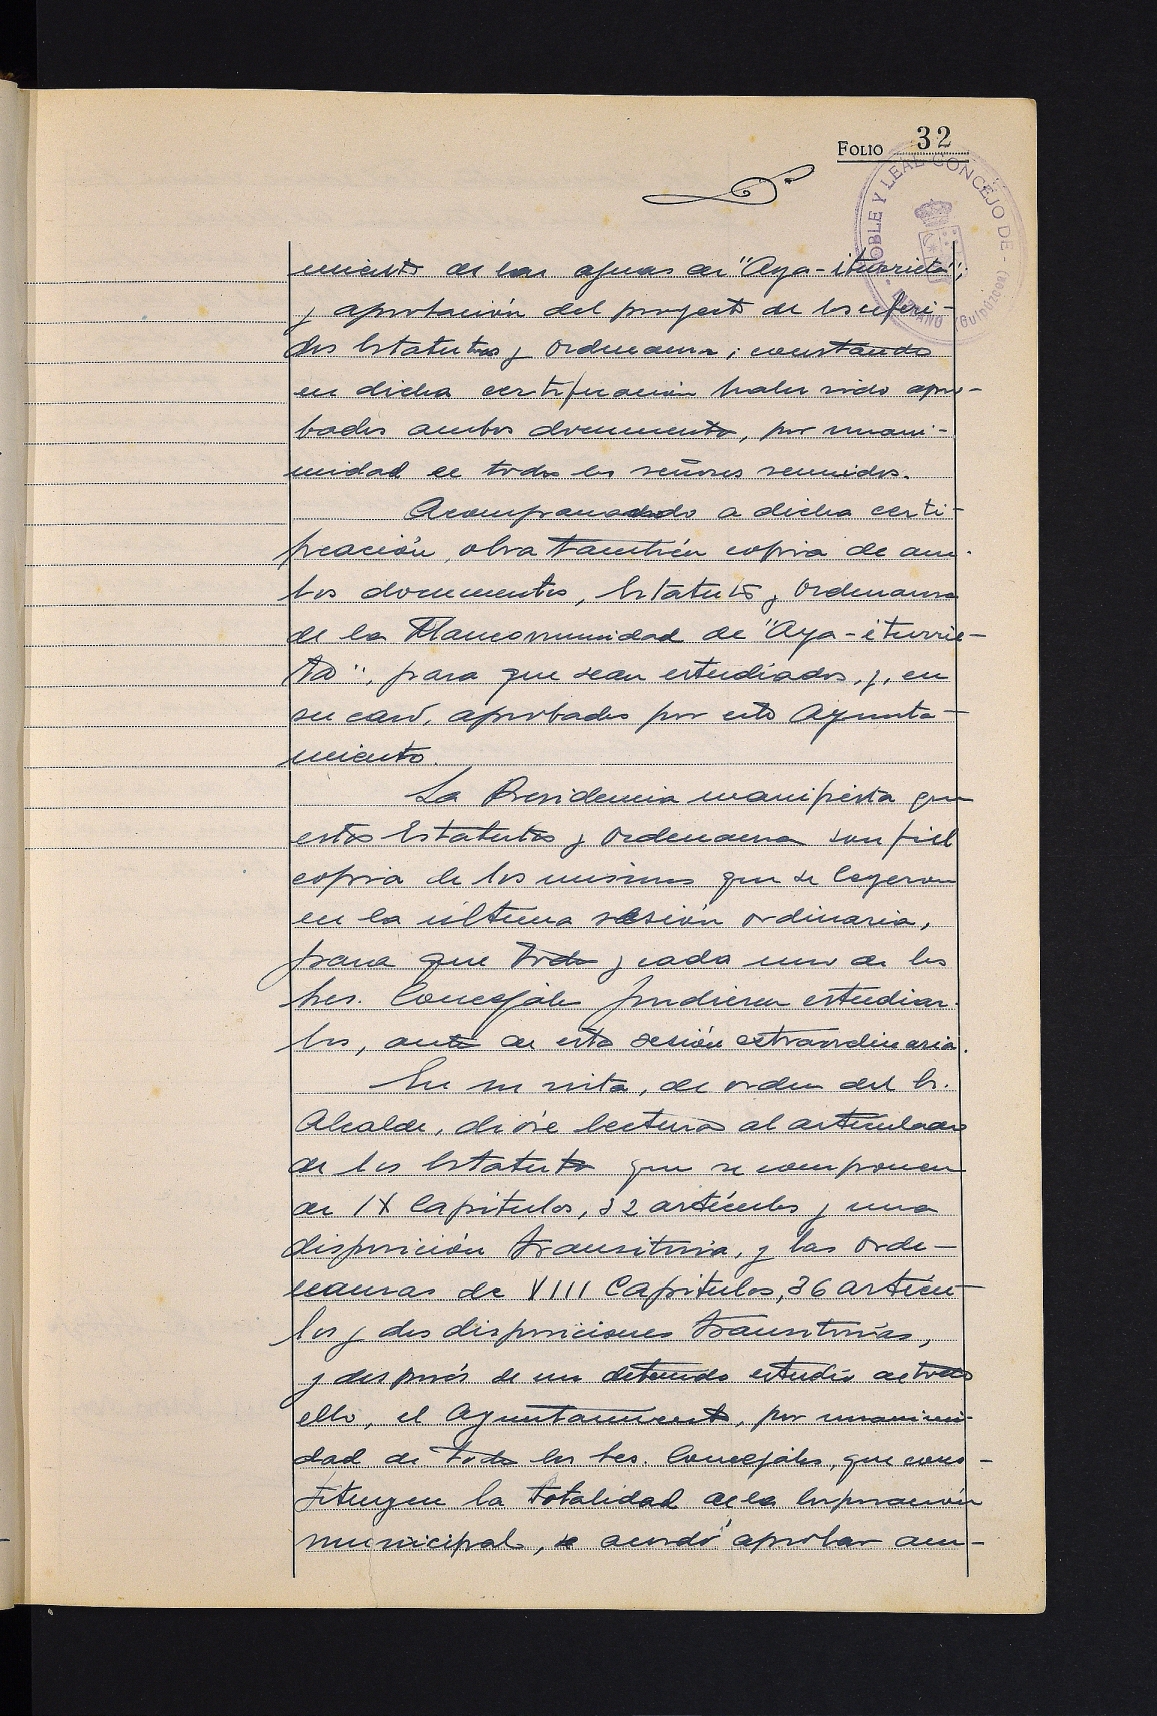 Folio 32
NOBLE Y LEAL CONCEJO DE - (Guipúzcoa)
miento de las aguas de "Aya-iturrieta";
y aprobación del proyecto de los referi-
dos Estatutos y Ordenanza; constando
en dicha certificación haber sido apro-
bados ambos documentos, por unani-
midad de todos los señores reunidos.
Acompañando a dicha certi-
ficación, obra también copia de am-
bos documentos, Estatutos y Ordenanza
de la Mancomunidad de "Aya-iturrie-
ta", para que sean estudiados, y, en
su caso, aprobados por este Ayunta-
miento.
La Presidencia manifiesta que
estos Estatutos y Ordenanza son fiel
copia de los mismos que se leyeron
en la última sesión ordinaria,
para que todos y cada uno de los
Sres. Concejales pudieran estudiar-
los, antes de esta sesión extraordinaria.
En su vista, de orden del Sr.
Alcalde, dióse lectura al articulado
de los Estatutos que se componen
de IX Capítulos, 32 artículos y una
disposición transitoria, y las Orde-
nanzas de VIII Capitulos, 36 artícu-
los y dos disposiciones transitorias,
y después de un detenido estudio de todo
ello, el Ayuntamiento, por unanimi-
dad de todos los Sres. Concejales, que cons-
tituyen la totalidad de la Corporación
municipal, se acordó aprobar am-